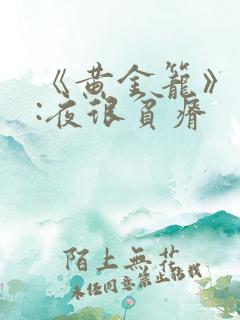 《黄金籠》
:夜很貧瘠
陌上無花
未经同意禁止转载